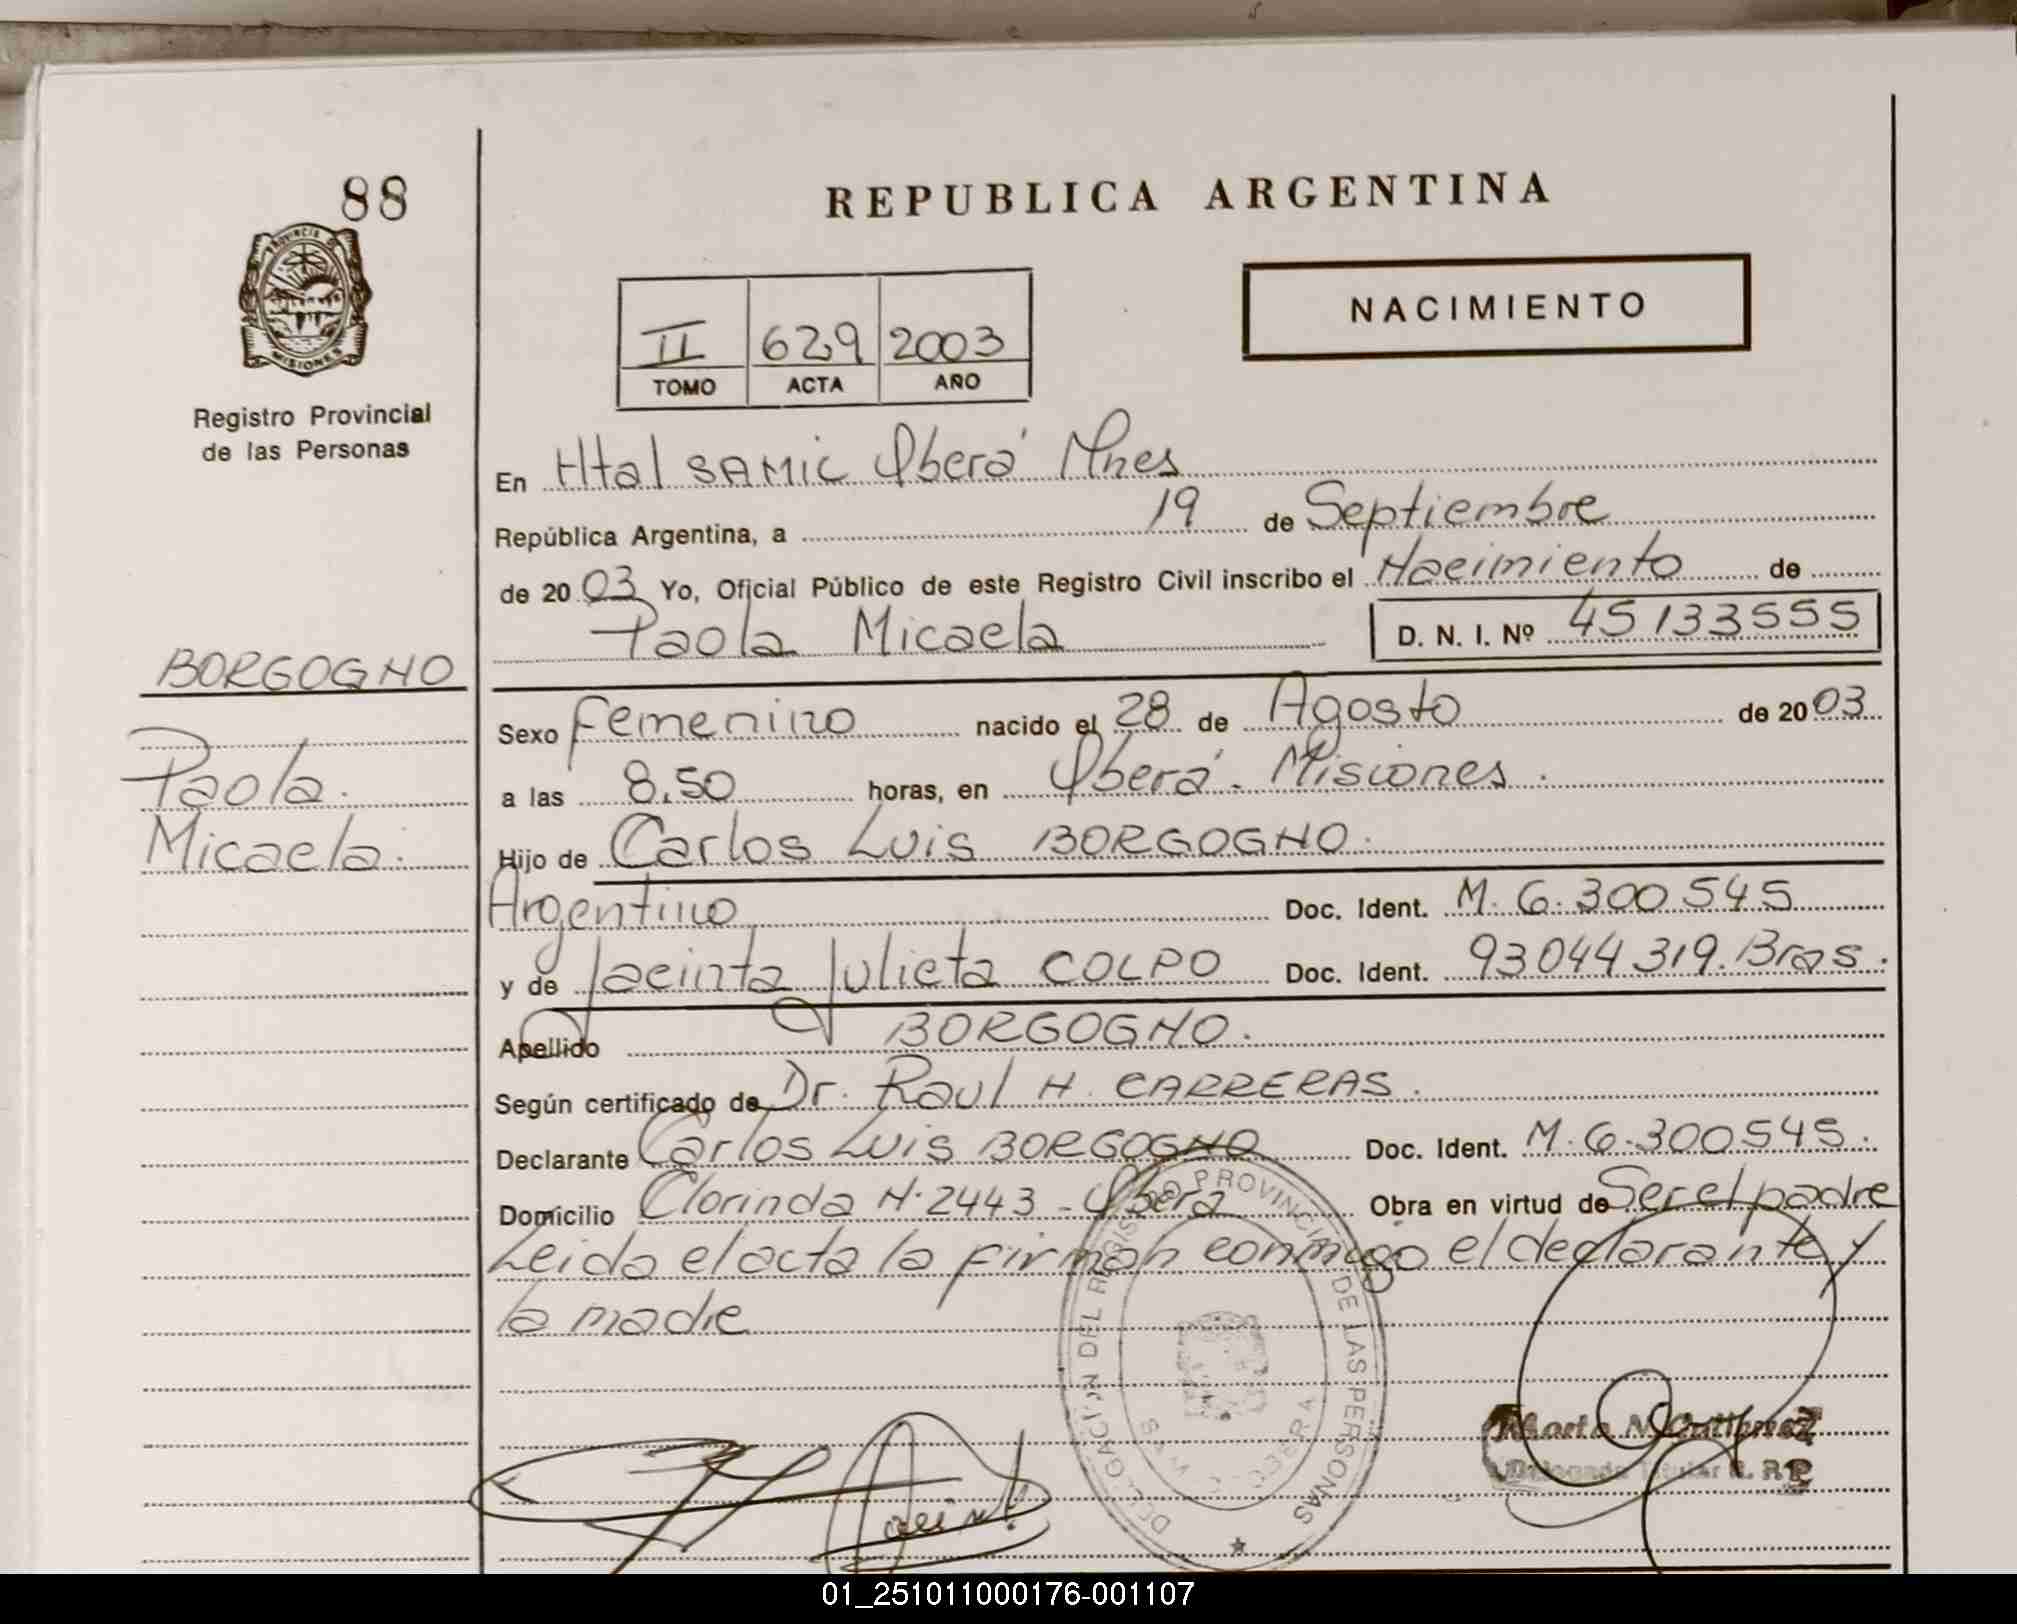 88
REPUBLICA ARGENTINA
PROVINCIA DE
MISIONES
NACIMIENTO
II 629 2003
TOMO ACTA AÑO
Registro Provincial
de las Personas
En Htal SAMIC Oberá Mnes
República Argentina, a 19 de Septiembre
de 2003 Yo, Oficial Público de este Registro Civil inscribo el Nacimiento de
Paola Micaela D. N. I. Nº 45133555
BORGOGNO
Paola
Micaela
Sexo Femenino nacido el 28 de Agosto de 2003
a las 8,50 horas, en Oberá - Misiones.
Hijo de Carlos Luis BORGOGNO.
Argentino Doc. Ident. M. 6.300545
y de Jacinta Julieta COLPO Doc. Ident. 93044319. Bras.
Apellido BORGOGNO.
Según certificado de Dr. Raul H. CARRERAS.
Declarante Carlos Luis BORGOGNO Doc. Ident. M. 6.300545.
Domicilio Clorinda N. 2443 - Oberá Obra en virtud de Ser el padre
Leida el acta la firman conmigo el declarante y
la madre
DELEGACION DEL REGISTRO PROVINCIAL DE LAS PERSONAS
OBERA
Marta N. Gutierrez
Delegada Titular R. P. P.
01_251011000176-001107